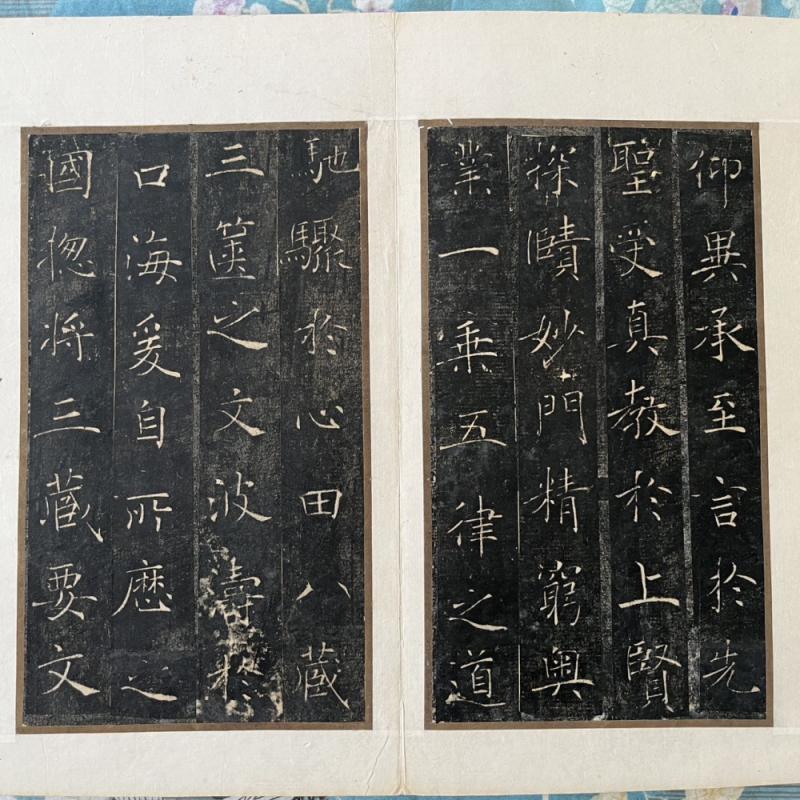 仰異承至言於先
聖受真教於上賢
探賾妙門精窮奥
業一乘五律之道
馳驟於心田八藏
三篋之文波濤於
口海爰自所歷之
國揔將三藏要文